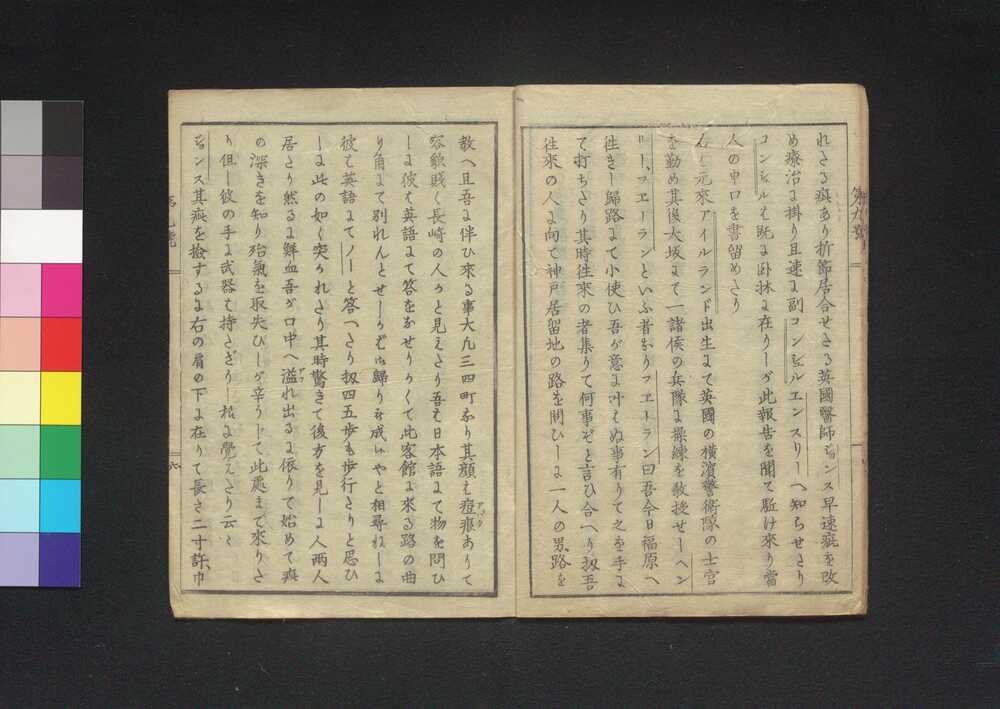 れたる疵あり折節居合せたる英國醫師ジョンス早速疵を改
め療治に掛り且速に副コンシュルエンスリーへ知らせたり
コンシュルは既に臥牀に在りしが此報告を聞て駈け來り當
人の申口を書留めたり
元來アイルランド出生にて英國の横濱警衛隊の士官
を勤め其後大坂にて一諸侯の兵隊に操練を教授せしヘン
リー、フエーランといふ者なりフエーラン曰吾今日福原へ
往きし歸路にて小使ひ吾が意に叶はぬ事有りて之を手に
て打ちたり其時往來の者集りて何事ぞと言ひ合へり扨吾
往來の人に向て神戸居留地の路を問ひしに一人の男路を
教へ且吾に伴ひ來る事大凡三四町なり其顔は痘痕ありて
アバタ
容貌賤く長崎の人かと見えたり吾は日本語にて物を問ひ
しに彼は英語にて答をなせりかくて此客館に來る路の曲
り角にて別れんとせしかば御歸りに成いやと相尋ねしに
彼は英語にてノーと答へたり扨四五歩も歩行たりと思ひ
しに此の如く突かれたり其時驚きて後方を見しに人兩人
居たり然るに鮮血吾が口中へ溢れ出るに依りて始めて疵
アフ
の深きを知り殆氣を取失ひしが辛うじて此處まで來りた
り但し彼の手に武器は持たざりし樣に覺えたり云々
ジョンス其疵を撿するに右の肩の下に在りて長さ二寸許巾
第九號
六